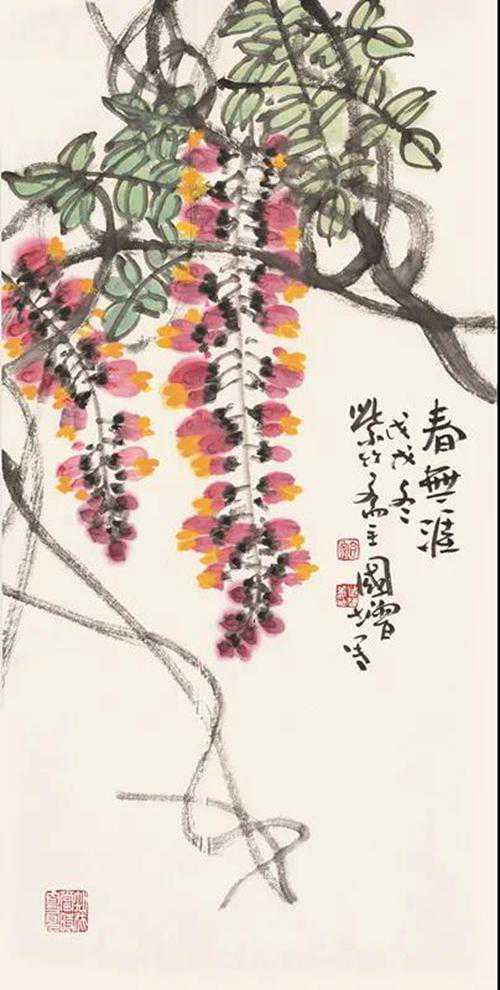 春無涯
戊戌冬
紫竹斋主
國增
写